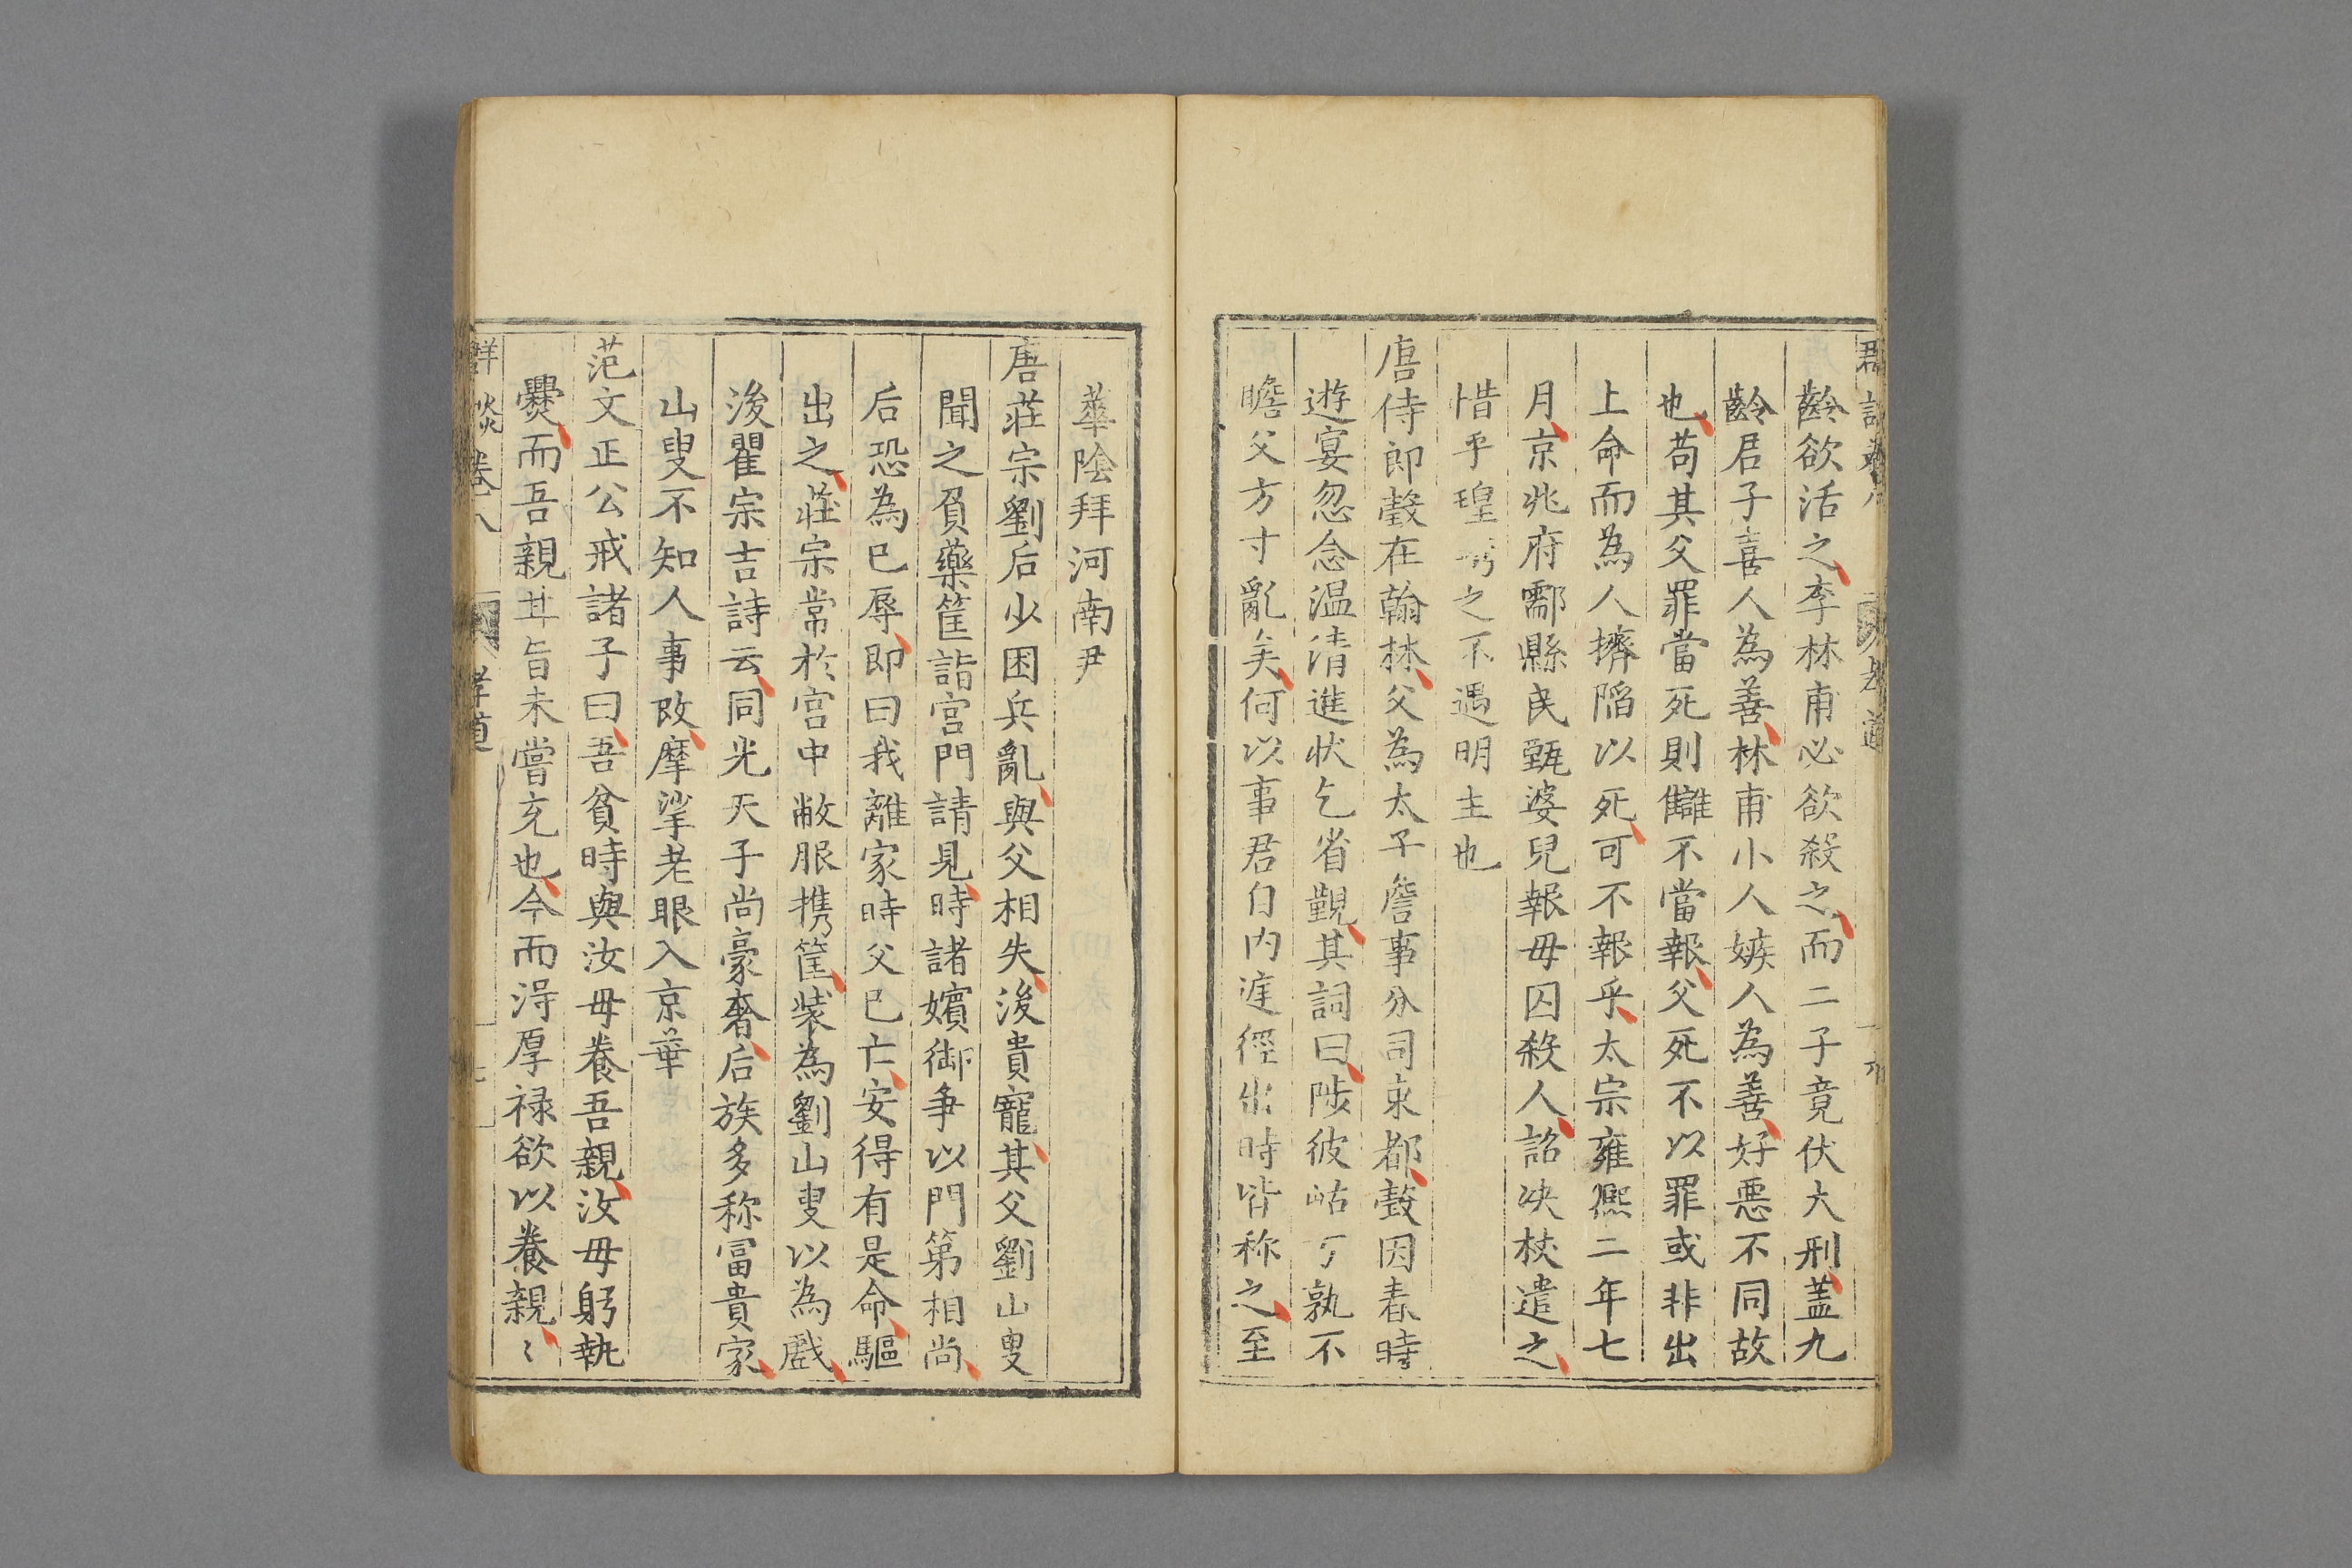 齡欲活之李林甫必欲殺之而二子竟伏大刑蓋九
齡君子喜人為善林甫小人嫉人為善好惡不同故
也苟其父罪當死則讎不當報父死不以罪或非出
上命而為人擠陷以死可不報乎太宗雍熙二年七
月京兆府鄠縣民甄婆兒報母囚殺人詔决杖遣之
惜乎瑝琇之不遇明主也
唐侍郎瑴在翰林父為太子詹事分司東都瑴因春時
遊宴忽念温凊進狀乞省覲其詞曰陟彼岵兮孰不
瞻父方寸亂矣何以事君自内庭徑出時皆称之至
華陰拜河南尹
唐莊宗劉后少困兵亂與父相失後貴寵其父劉山叟
聞之負藥筐詣宮門請見時諸嬪御争以門第相尚
后恐為己辱即曰我離家時父已亡安得有是命驅
出之莊宗常於宮中敝服携筐装為劉山叟以為戲
後瞿宗吉詩云同光天子尚豪奢后族多称冨貴家
山叟不知人事改摩挲老眼入京華
范文正公戒諸子曰吾貧時與汝母養吾親汝母躬執
爨而吾親甘旨未嘗充也今而淂厚禄欲以養親〻
群談卷八 孝道